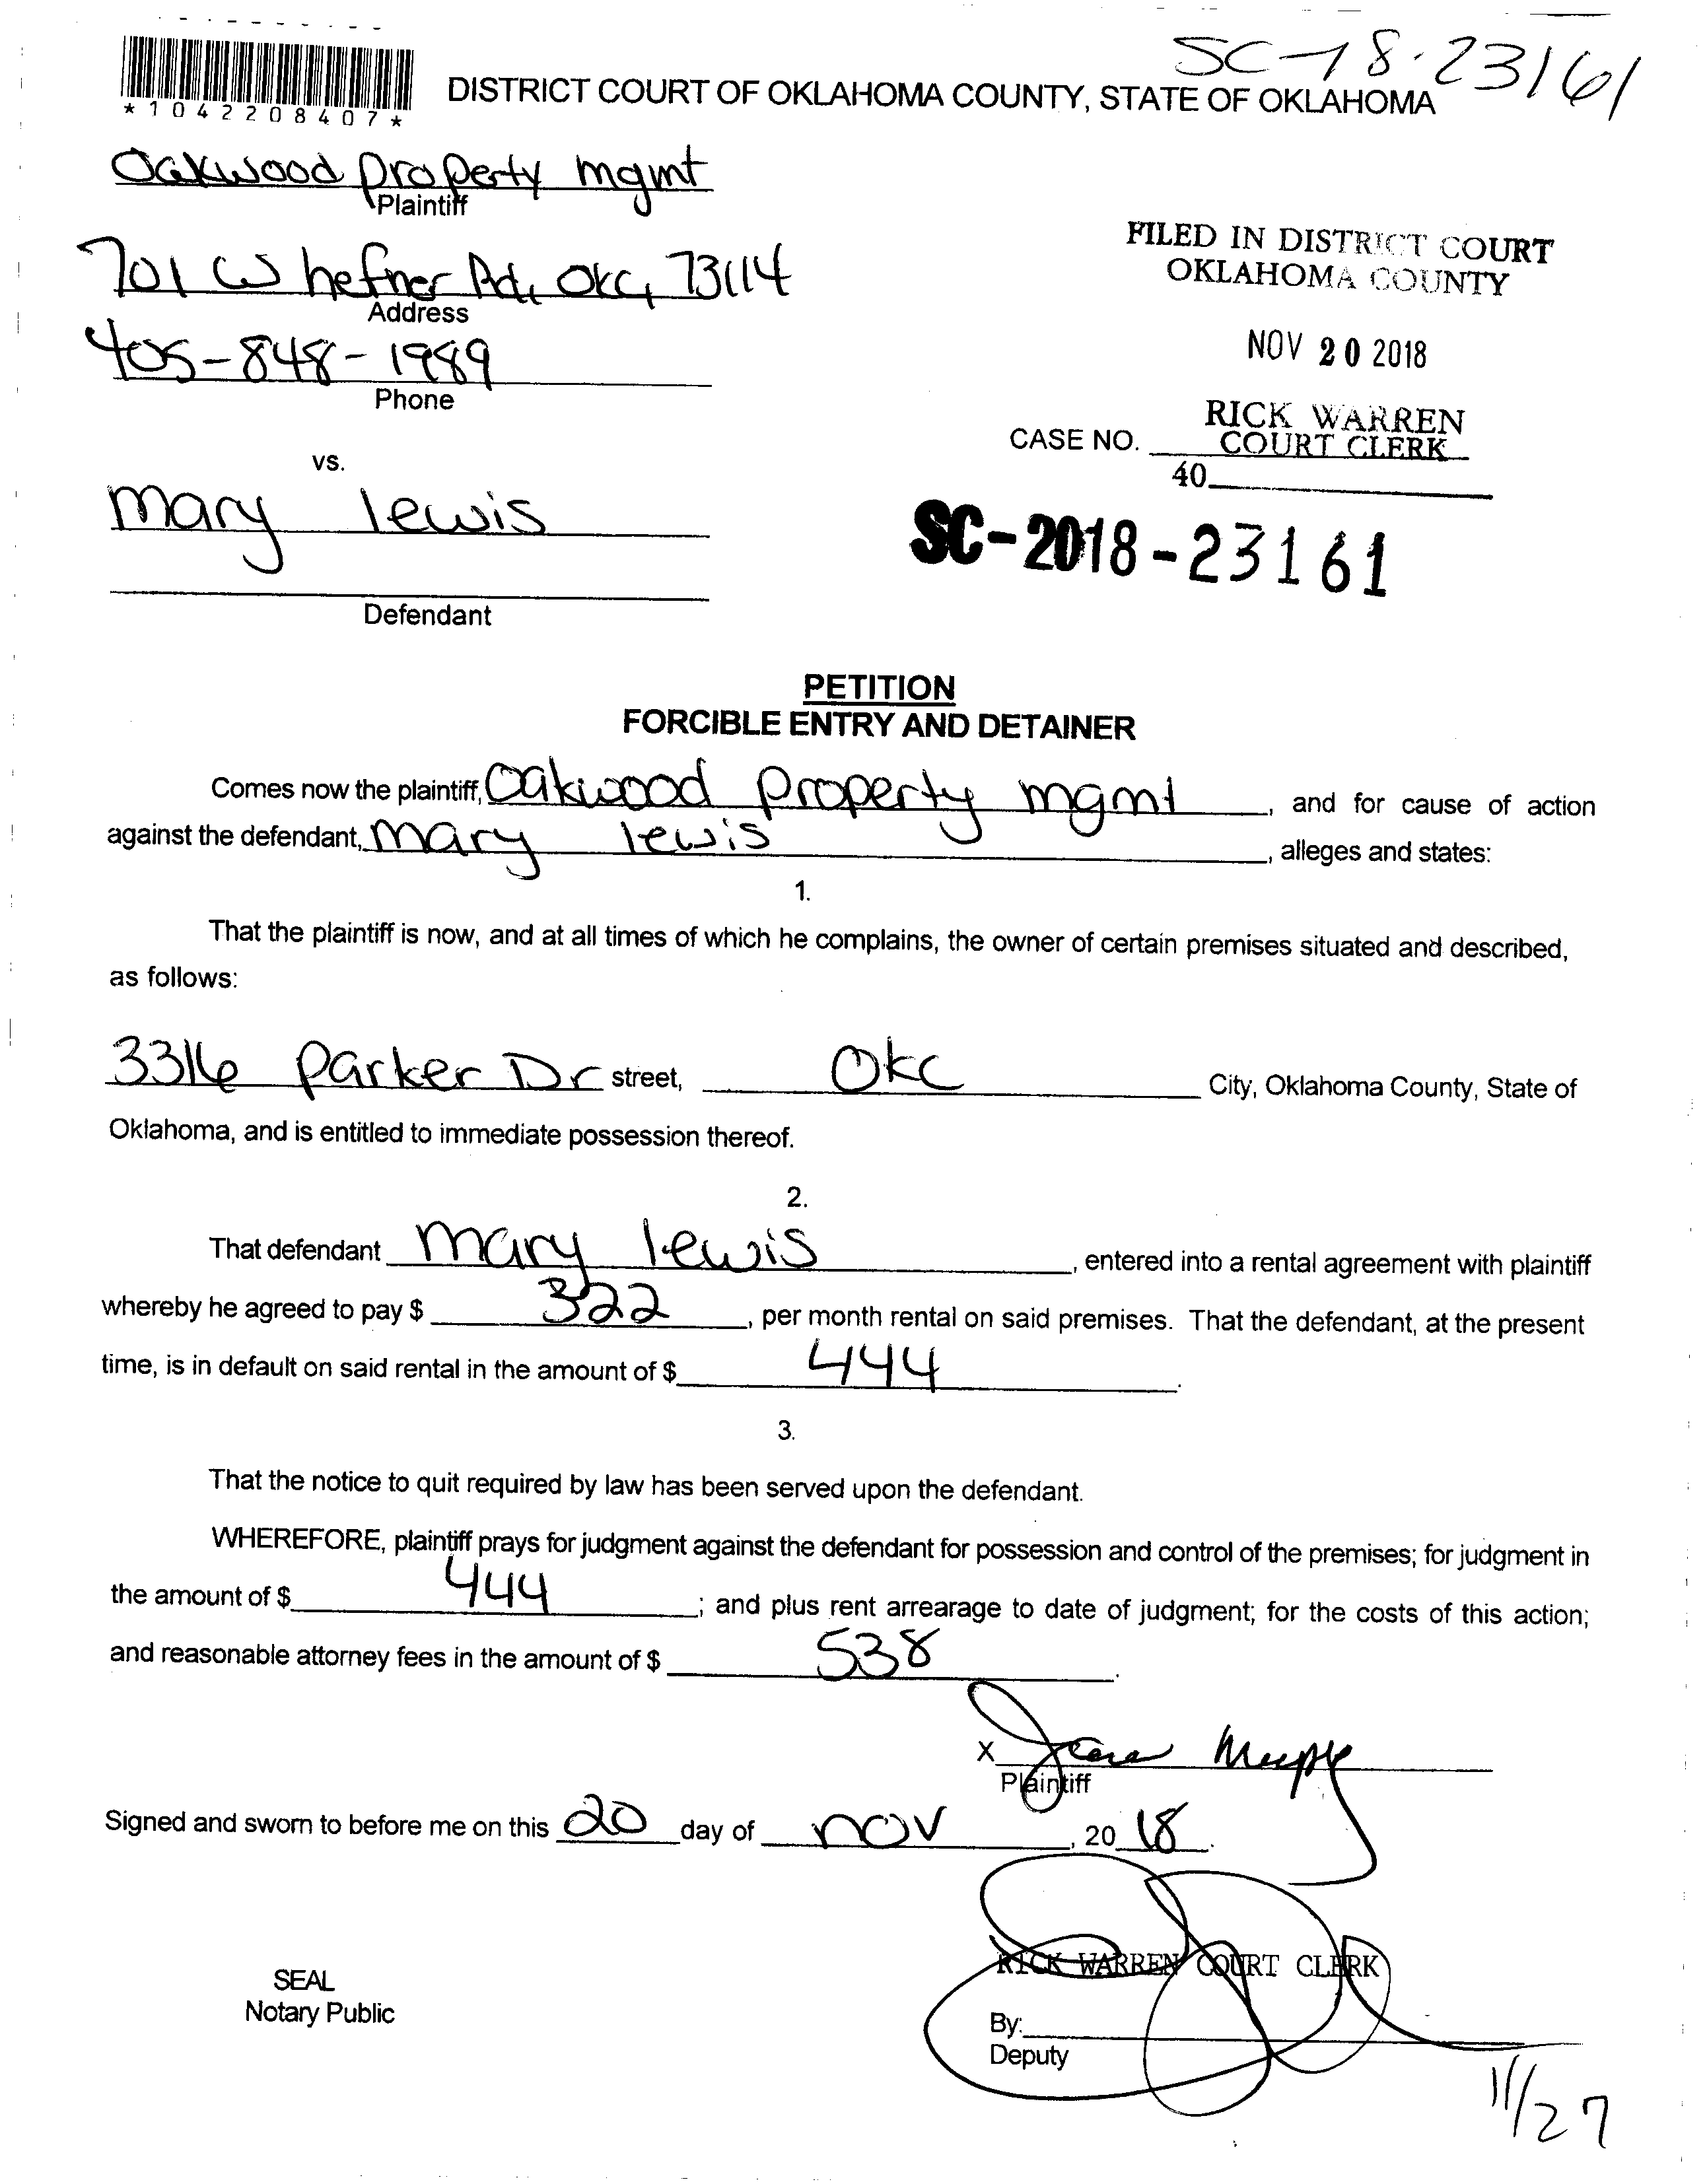 SC-18-23161
*1042208407*
DISTRICT COURT OF OKLAHOMA COUNTY, STATE OF OKLAHOMA
Oakwood Property mgmt
Plaintiff
701 W hefner Rd, OKC, 73114
Address
FILED IN DISTRICT COURT
OKLAHOMA COUNTY
405-848-1989
Phone
NOV 20 2018
RICK WARREN
CASE NO. COURT CLERK
40
vs.
mary lewis
SC-2018-23161
Defendant
PETITION
FORCIBLE ENTRY AND DETAINER
Comes now the plaintiff, Oakwood Property mgmt, and for cause of action
against the defendant, mary lewis, alleges and states:
1.
That the plaintiff is now, and at all times of which he complains, the owner of certain premises situated and described,
as follows:
3316 Parker Dr street, OKC City, Oklahoma County, State of
Oklahoma, and is entitled to immediate possession thereof.
2.
That defendant mary lewis, entered into a rental agreement with plaintiff
whereby he agreed to pay $ 322, per month rental on said premises. That the defendant, at the present
time, is in default on said rental in the amount of $ 444.
3.
That the notice to quit required by law has been served upon the defendant.
WHEREFORE, plaintiff prays for judgment against the defendant for possession and control of the premises; for judgment in
the amount of $ 444; and plus rent arrearage to date of judgment; for the costs of this action;
and reasonable attorney fees in the amount of $ 538.
X
Plaintiff
Signed and sworn to before me on this 20 day of nov, 20 18.
RICK WARREN COURT CLERK
SEAL
Notary Public
By:
Deputy
11/27